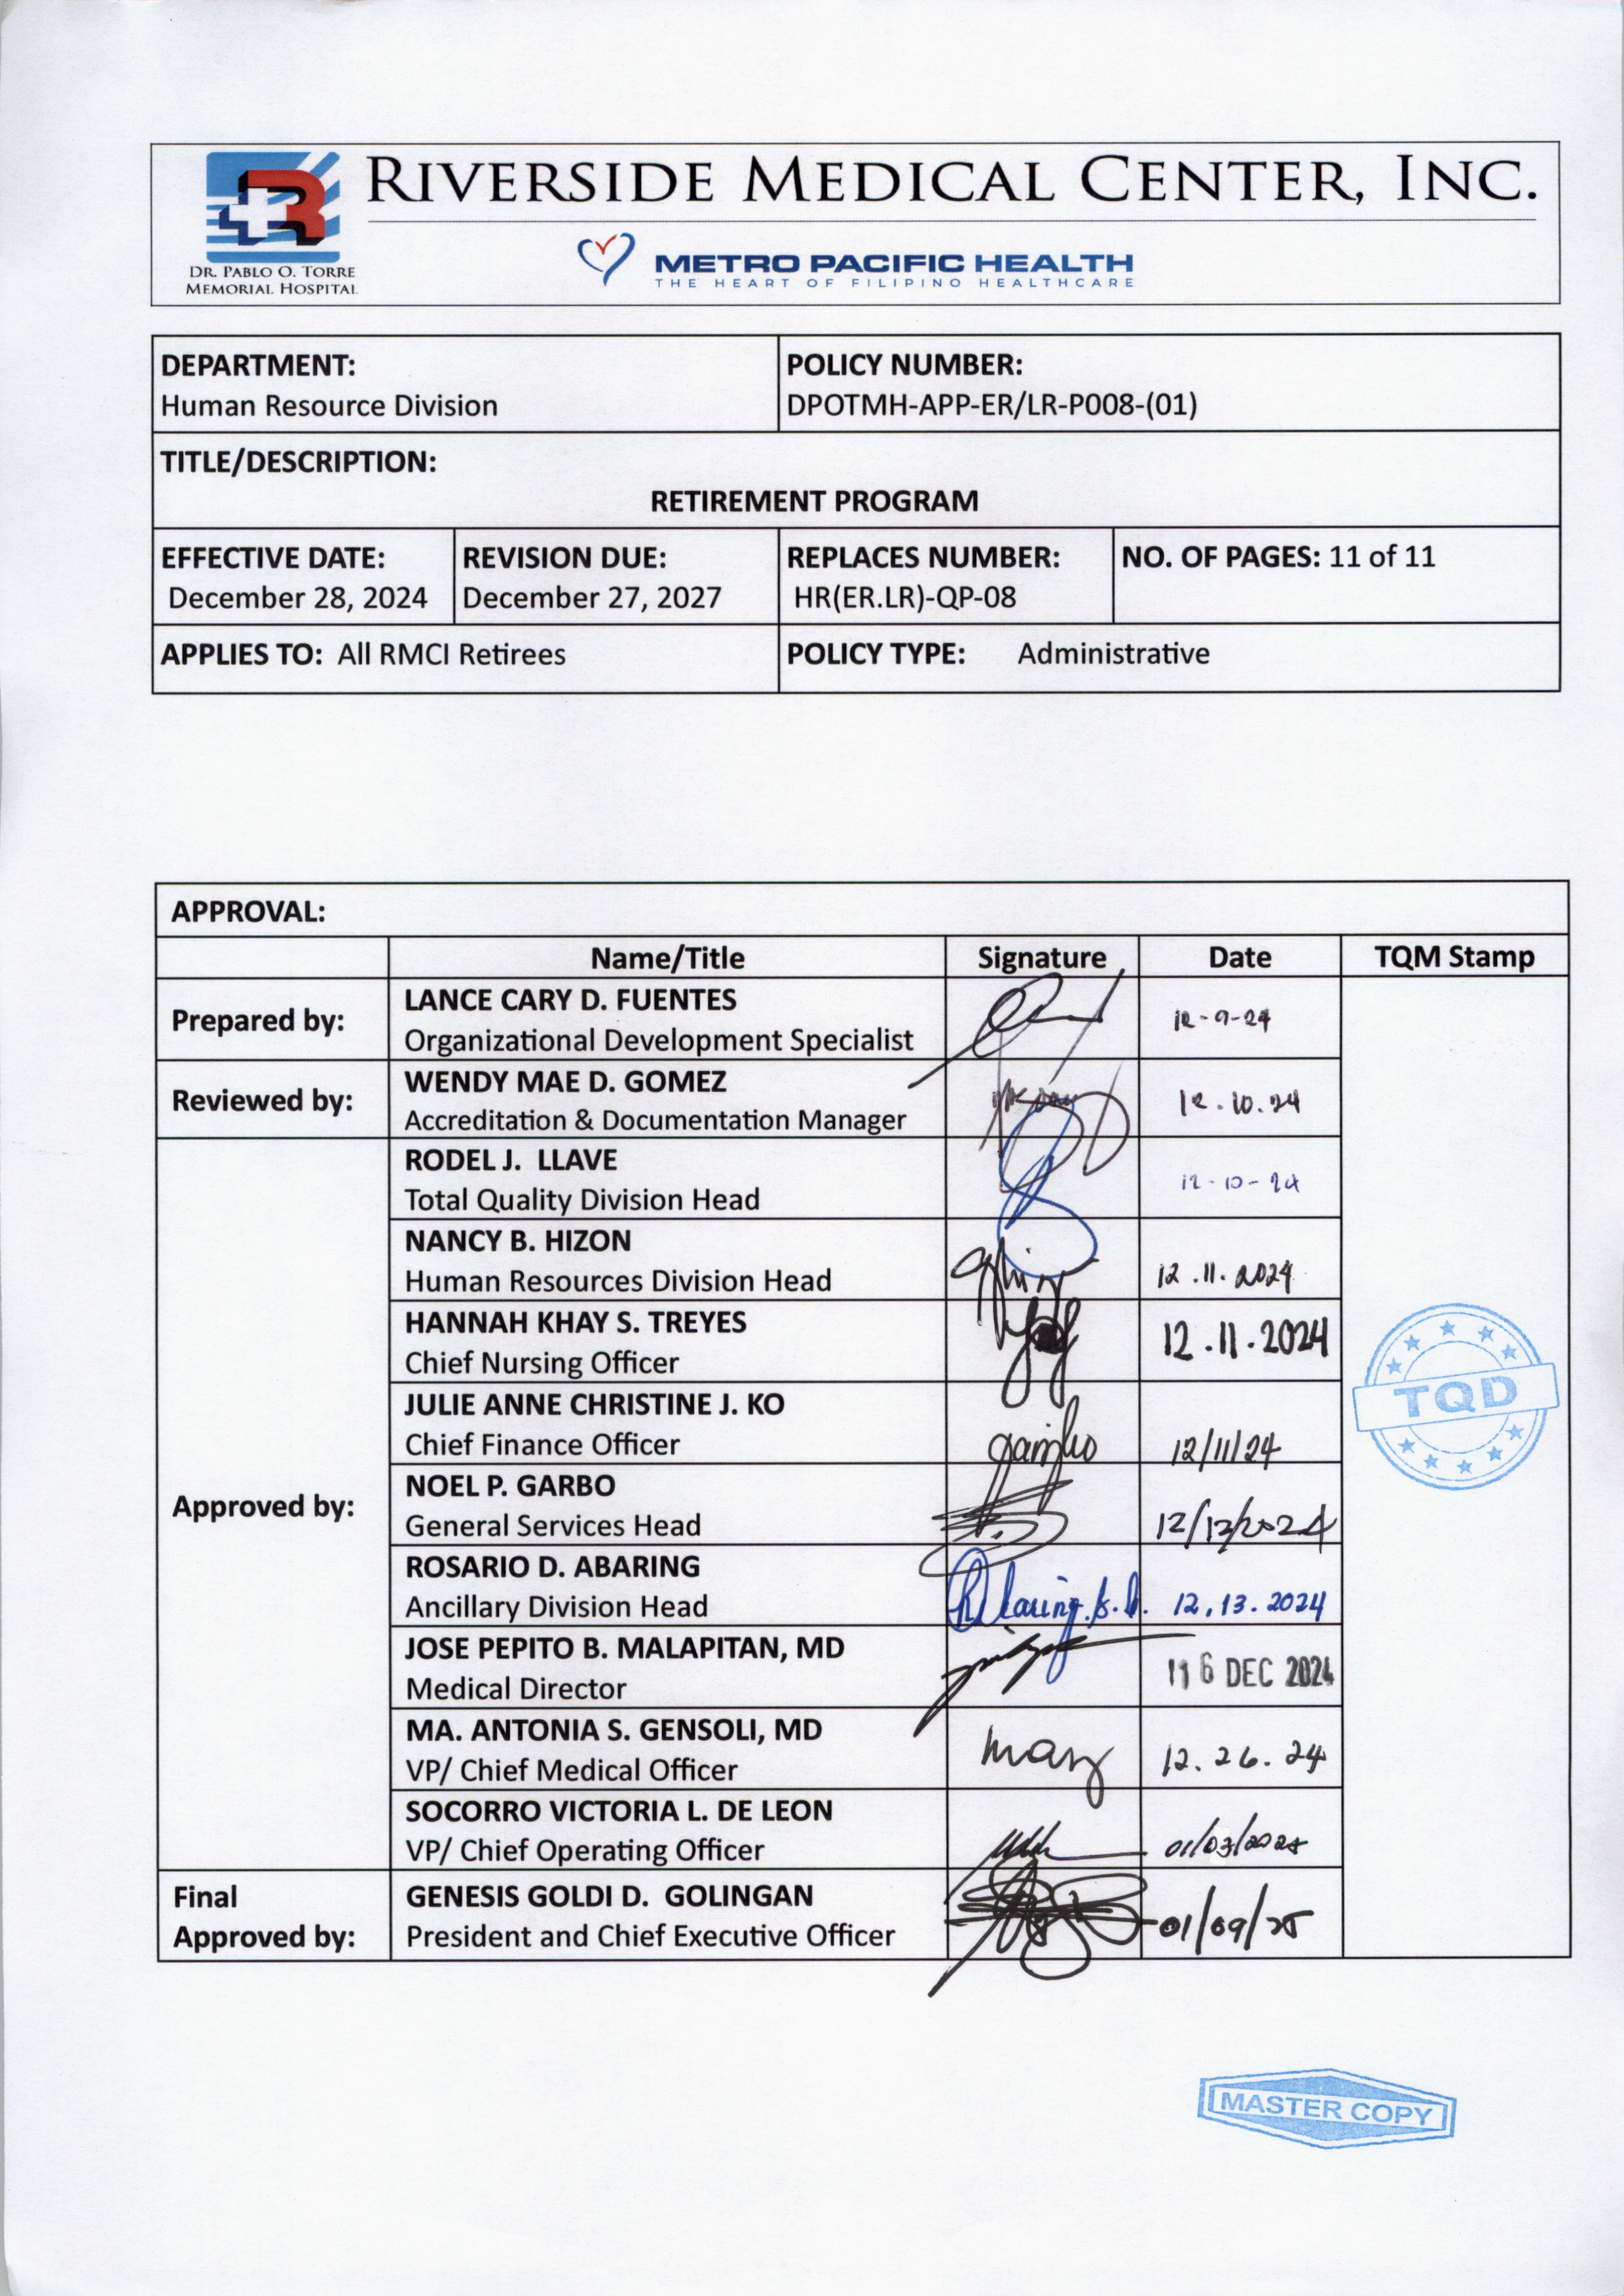 RIVERSIDE MEDICAL CENTER, INC.
DR. PABLO O. TORRE
MEMORIAL HOSPITAL
METRO PACIFIC HEALTH
THE HEART OF FILIPINO HEALTHCARE
DEPARTMENT:
Human Resource Division
POLICY NUMBER:
DPOTMH-APP-ER/LR-P008-(01)
TITLE/DESCRIPTION:
RETIREMENT PROGRAM
EFFECTIVE DATE:
December 28, 2024
REVISION DUE:
December 27, 2027
REPLACES NUMBER:
HR(ER.LR)-QP-08
NO. OF PAGES: 11 of 11
APPLIES TO: All RMCI Retirees
POLICY TYPE: Administrative
APPROVAL:
Name/Title Signature Date TQM Stamp
Prepared by:
LANCE CARY D. FUENTES
Organizational Development Specialist
12-9-24
Reviewed by:
WENDY MAE D. GOMEZ
Accreditation & Documentation Manager
12.10.24
Approved by:
RODEL J. LLAVE
Total Quality Division Head
12-10-24
NANCY B. HIZON
Human Resources Division Head
12.11.2024
HANNAH KHAY S. TREYES
Chief Nursing Officer
12.11.2024
JULIE ANNE CHRISTINE J. KO
Chief Finance Officer
12/11/24
NOEL P. GARBO
General Services Head
12/12/2024
ROSARIO D. ABARING
Ancillary Division Head
12.13.2024
JOSE PEPITO B. MALAPITAN, MD
Medical Director
16 DEC 2024
MA. ANTONIA S. GENSOLI, MD
VP/ Chief Medical Officer
12.26.24
SOCORRO VICTORIA L. DE LEON
VP/ Chief Operating Officer
Final
Approved by:
GENESIS GOLDI D. GOLINGAN
President and Chief Executive Officer
01/09/25
TQD
MASTER COPY